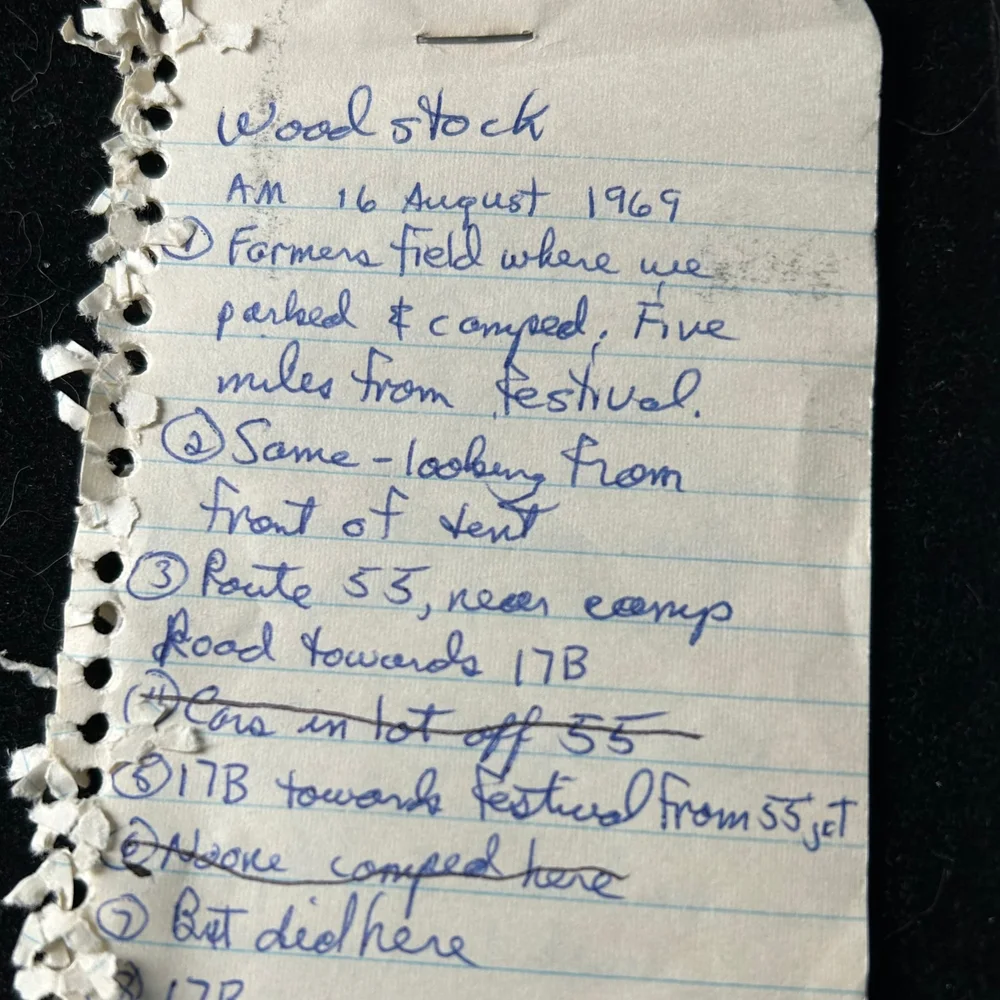 Woodstock
AM 16 August 1969
① Farmers field where we
parked & camped, Five
miles from festival.
② Same - looking from
front of tent
③ Route 55, near camp
Road towards 17B
(4) Cars in lot off 55
⑤ 17B towards festival from 55 jct
⑥ Noone camped here
⑦ But did here
⑧ 17B